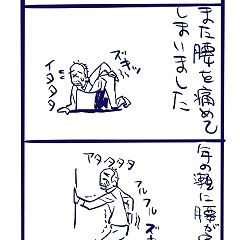 また腰を痛めて
しまいました
ズキッ
イタタタ
年の瀬に腰が
アタタタタ
フルフル
フルフル
ズキ